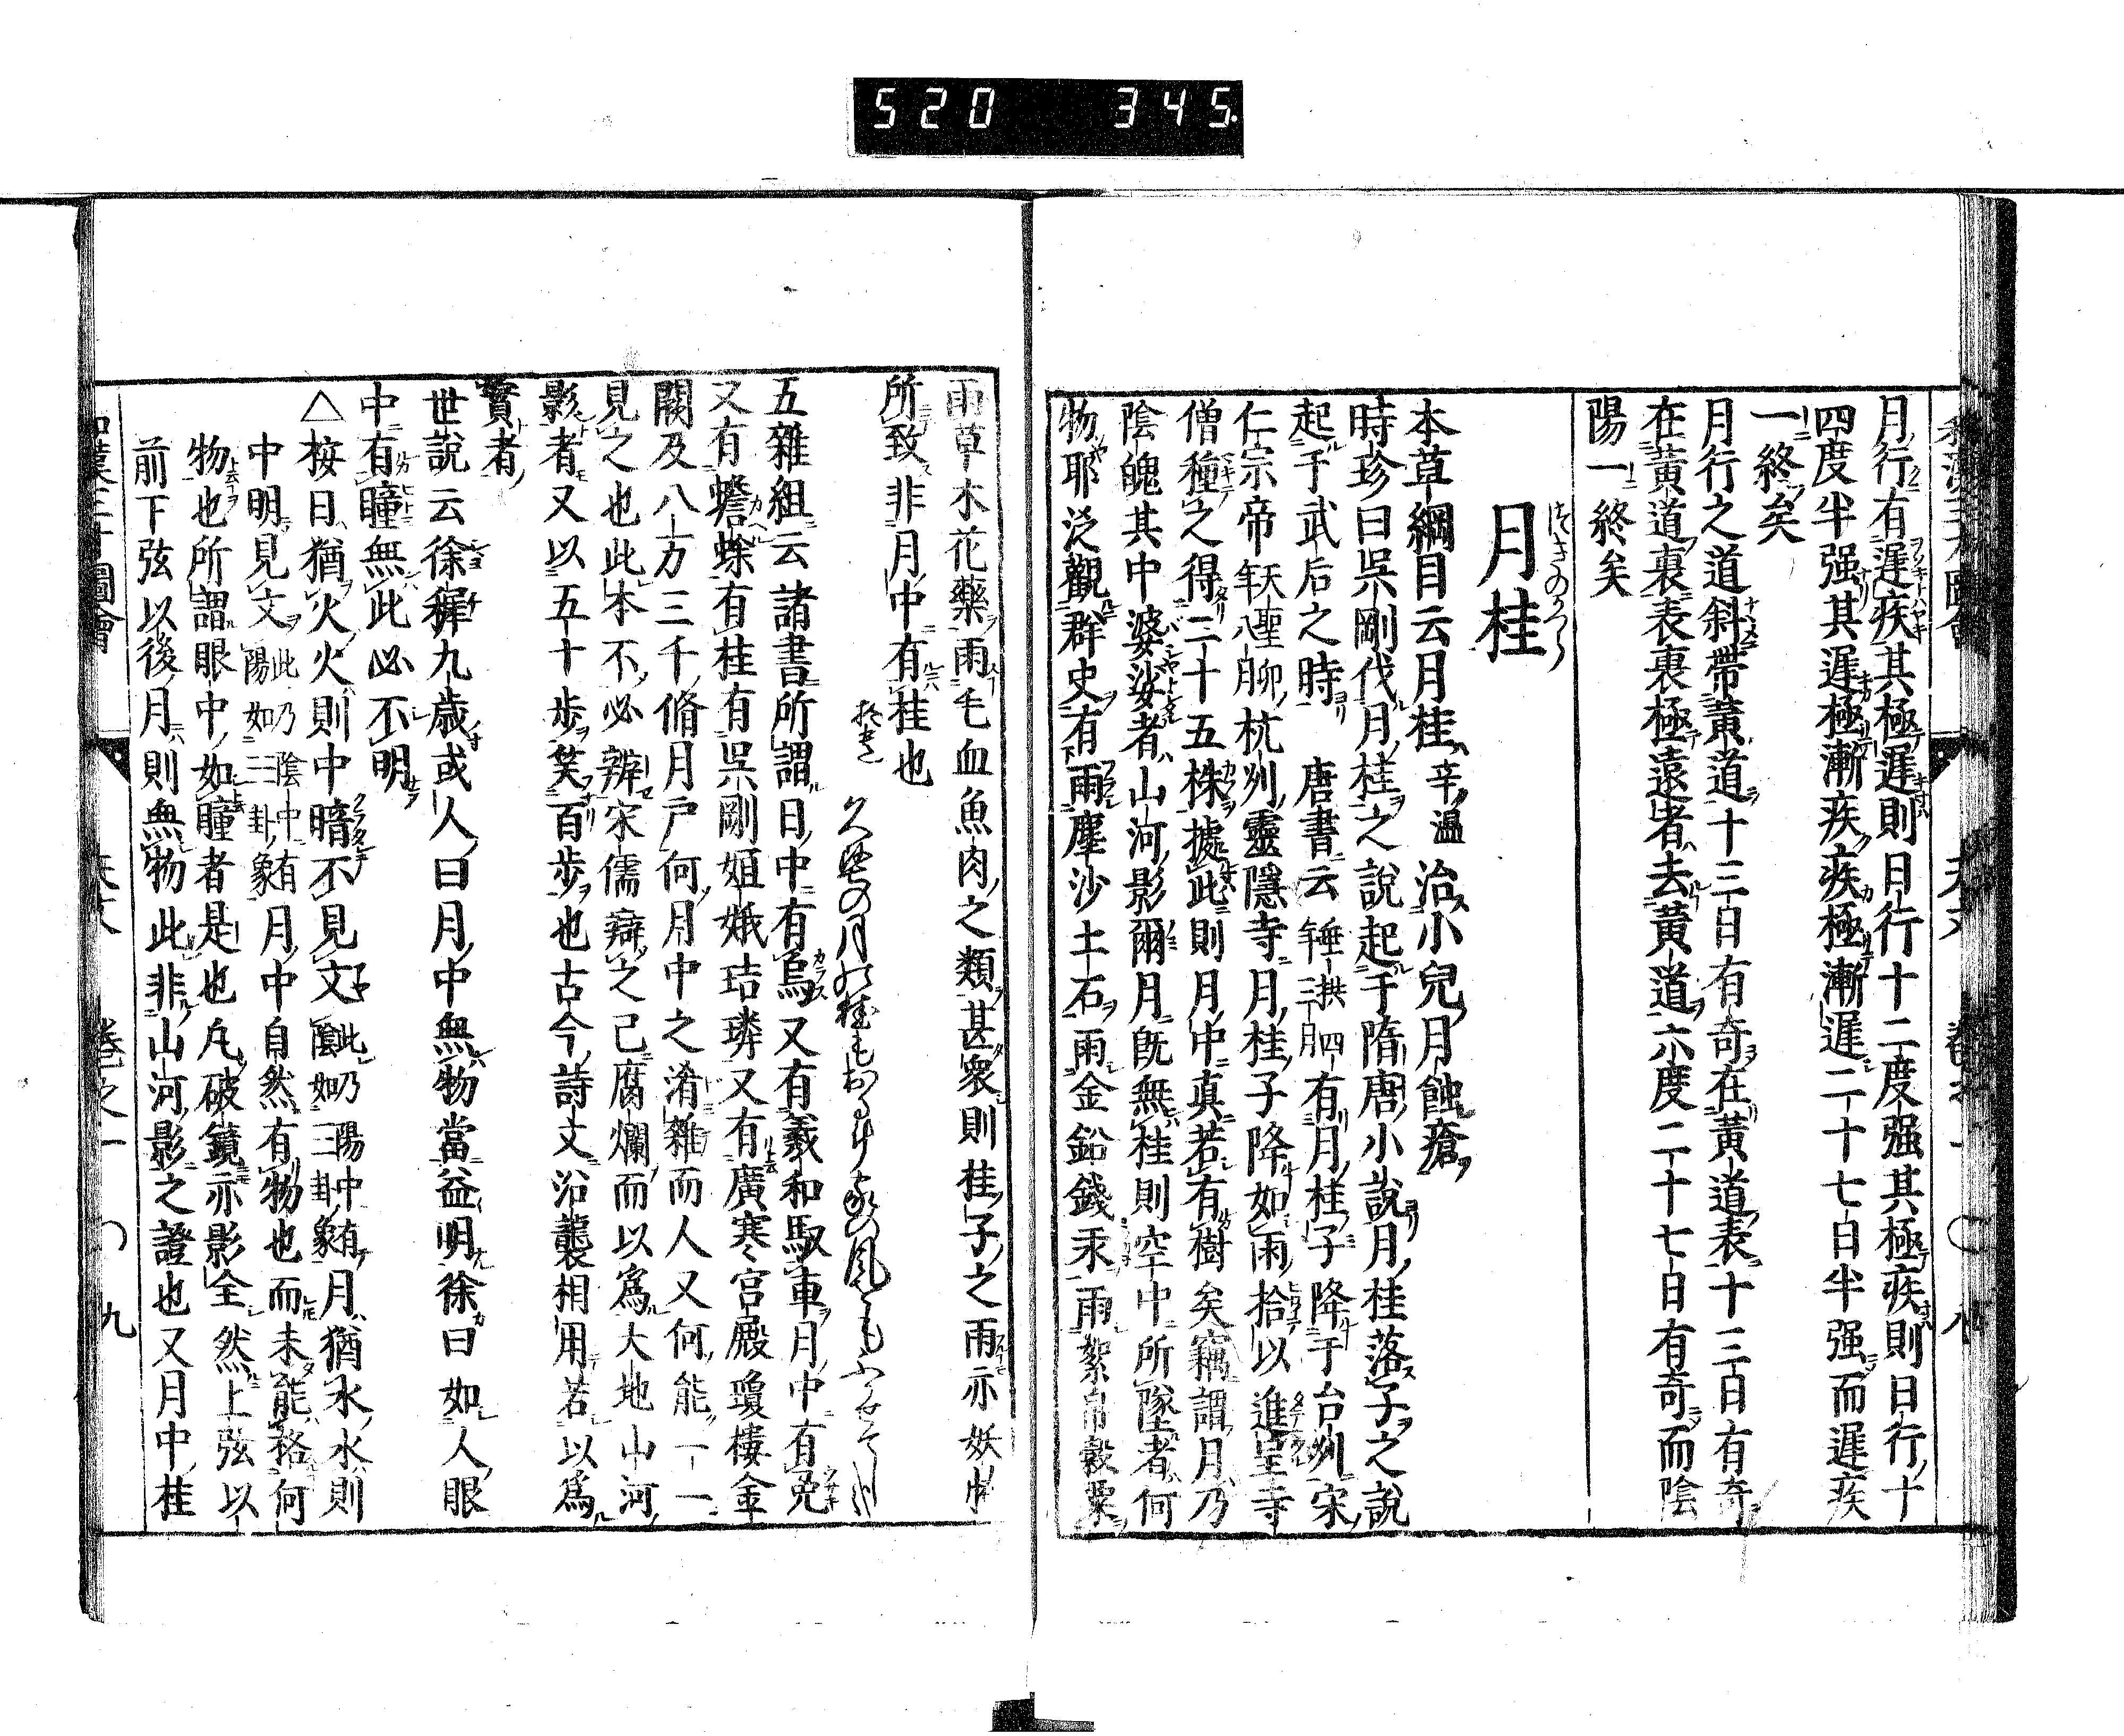 520 345
月行有遲疾其極遲則日行十二度强其極疾則日行十
四度半强其遲極漸疾疾極漸遲二十七日半强而遲疾
一終矣
月行之道斜帶黃道十三日有奇在黃道表十三日有奇
在黃道裏表裏極遠者去黃道六度二十七日有奇而陰
陽一終矣
月桂
本草綱目云月桂辛温治小兒月蝕瘡
時珍曰吳剛伐月桂之說起于隋唐小說月桂落子之說
起于武后之時 唐書云垂拱四年三月有月桂子降于台州宋
仁宗帝天聖八年八月卯杭州靈隱寺月桂子降如雨拾以進呈寺
僧種之得二十五株據此則月中真若有樹矣竊謂月乃
陰魄其中婆娑者山河影爾月既無桂則空中所墜者何
物耶泛觀群史有雨塵沙土石雨金鉛錢汞雨絮帛穀粟
雨草木花藥雨毛血魚肉之類甚衆則桂子之雨亦妖
所致非月中有桂也
久堅の月の桂もおるけ家の風をも
五雜組云諸書所謂日中有烏又有羲和馭車月中有兔
又有蟾蜍有桂有吳剛姮娥結璘又有廣寒宮殿瓊樓金
闕及八万三千脩月戶何月中之淆雜而人又何能一一
見之也此本不必辨宋儒辯之已腐爛而以爲大地山河
影者又以五十步笑百步也古今詩文沿襲相用若以爲
實者
世說云徐穉九歲或人曰月中無物當益明徐曰如人眼
中有瞳無此必不明
△按日猶火火則中暗不見文此乃陽中有陰如☲卦象月猶水水則
中明見文此乃陰中有陽如☵卦象月中自然有物也而未能格何
物也所謂眼中如瞳者是也凡破鏡亦影全然上弦以
前下弦以後月則無物此非山河影之證也又月中桂
卷之一 〇 九